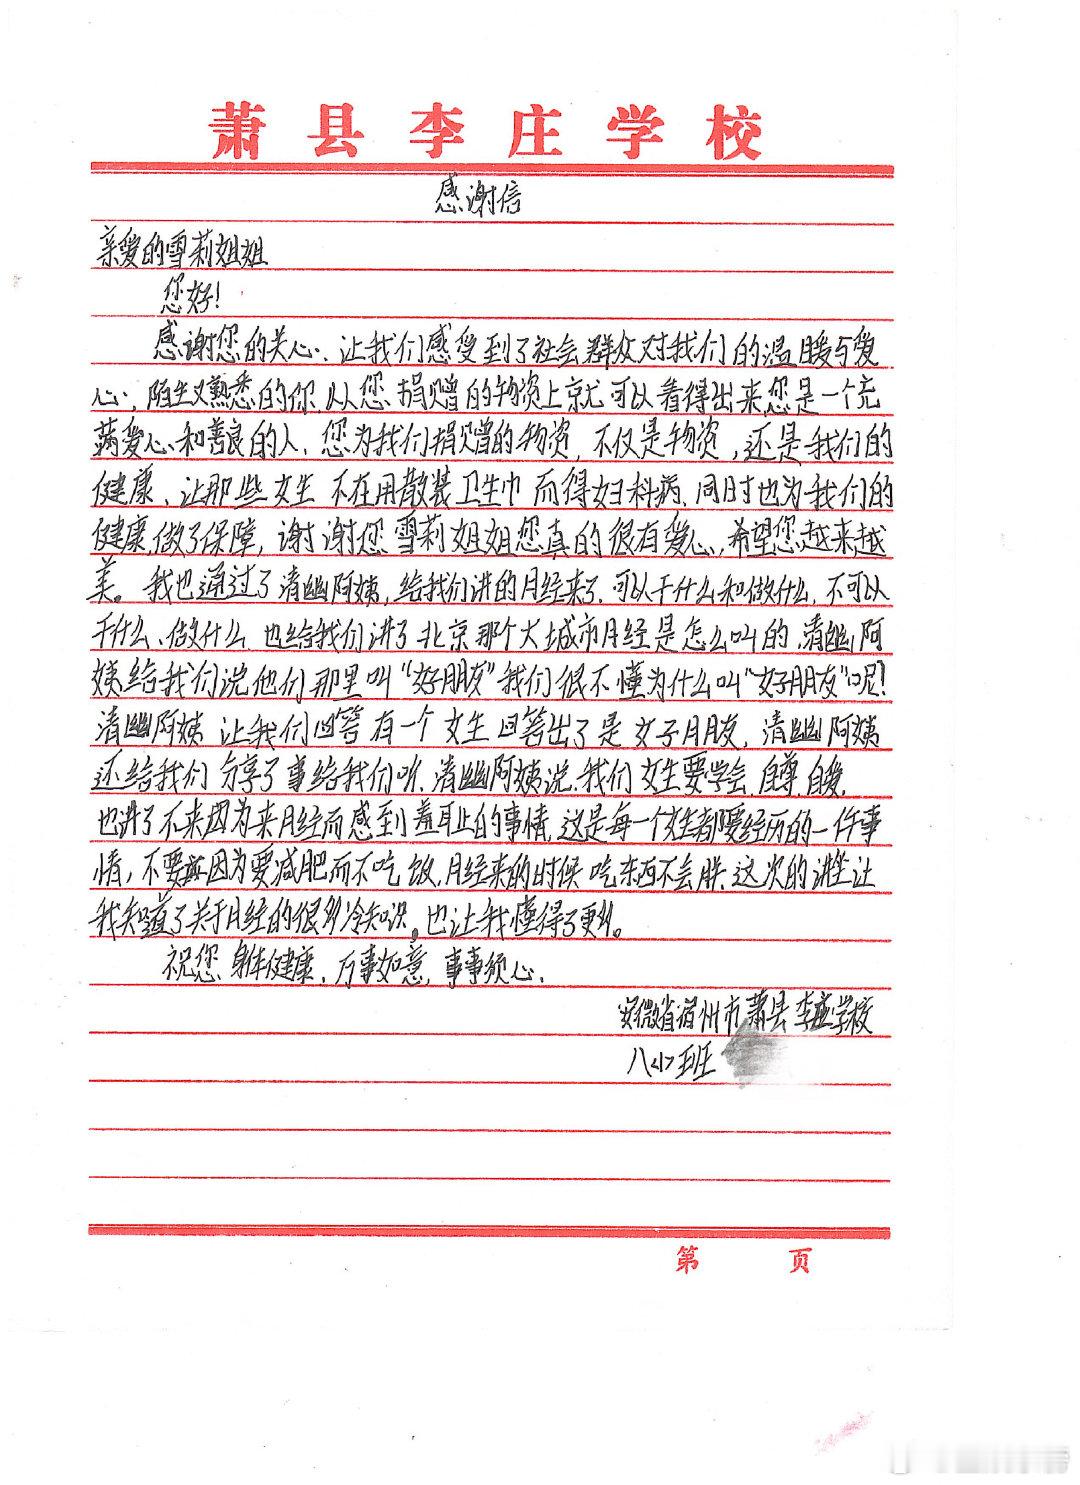 萧县李庄学校
感谢信
亲爱的雪莉姐姐
您好!
感谢您的关心,让我们感受到了社会群众对我们的温暖与爱
心,陌生又熟悉的你从您捐赠的物资上就可以看得出来您是一个充
满爱心和善良的人,您为我们捐赠的物资,不仅是物资,还是我们的
健康、让那些女生不在用散装卫生巾而得妇科病,同时也为我们的
健康,做了保障,谢谢您雪莉姐姐您真的很有爱心,希望您越来越
美。我也通过了清幽阿姨,给我们讲的月经来了,可以干什么和做什么,不可以
干什么、做什么,也给我们讲了北京那个大城市月经是怎么叫的,清幽阿
姨给我们说他们那里叫“好朋友”我们很不懂为什么叫“好朋友”呢?
清幽阿姨让我们回答有一个女生回答出了是女子月月友,清幽阿姨
还给我们分享了事给我们听,清幽阿姨说,我们女生要学会,自尊,自爱,
也讲了不来因为来月经而感到羞耻的事情,这是每一个女生都要经历的一件事
情,不要因为要减肥而不吃饭,月经来的时候吃东西不会胖,这次的讲坐让
我知道了关于月经的很多冷知识。也让我懂得了更多。
祝您身体健康,万事如意,事事顺心,
安徽省宿州市萧县李庄学校
八<小>班
第 页